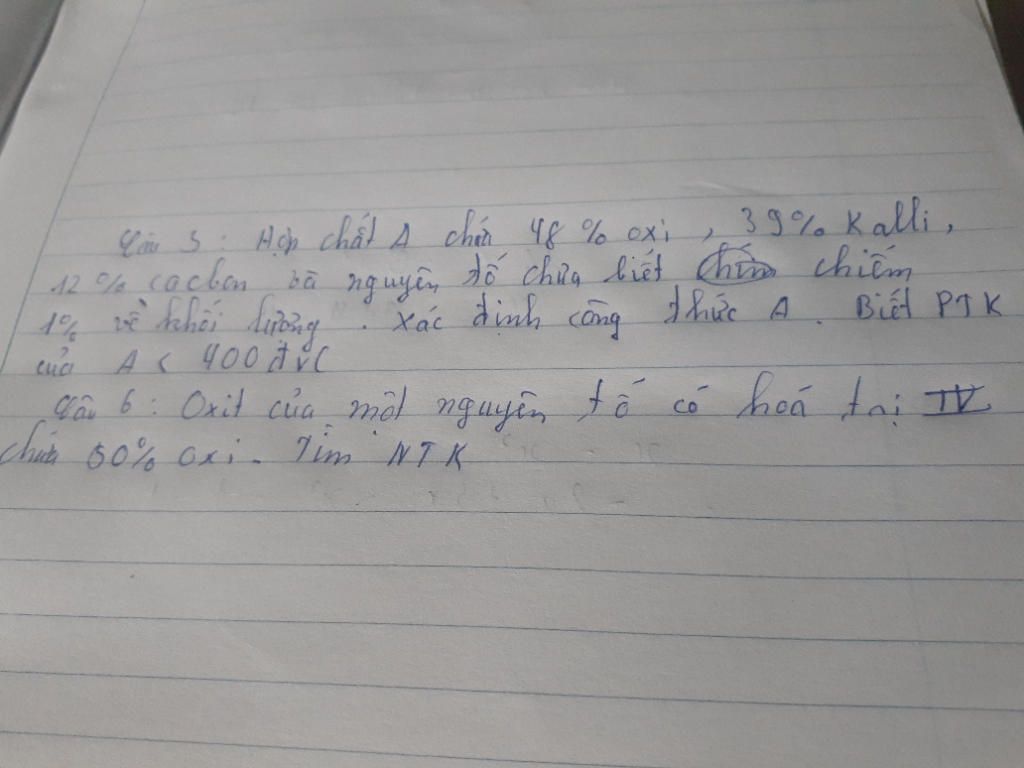 Câu 5 : Hợp chất A chứa 48 % oxi, 39% Kalli,
12 % cacbon và nguyên tố chưa biết chiếm
1% về khối lượng. Xác định công thức A. Biết PTK
của A < 400 đvC
Câu 6 : Oxit của một nguyên tố có hoá trị IV
chứa 50% oxi. Tìm NTK